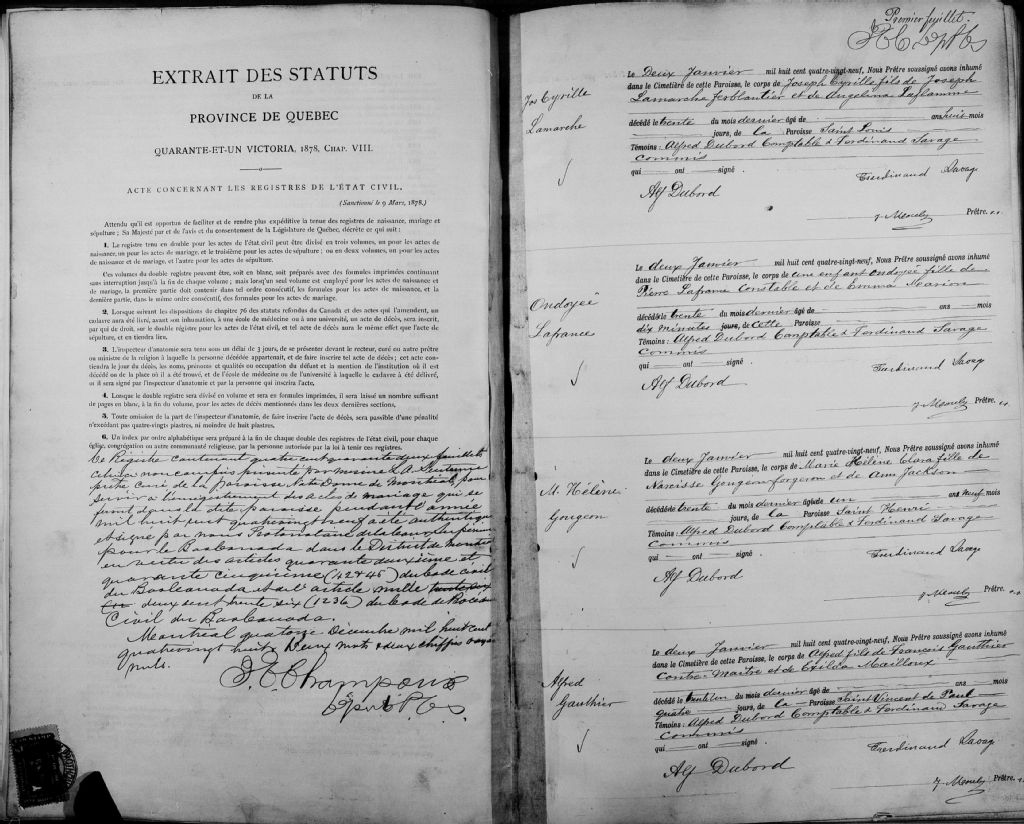 EXTRAIT DES STATUTS
DE LA
PROVINCE DE QUEBEC
QUARANTE-ET-UN VICTORIA, 1878, CHAP. VIII.
ACTE CONCERNANT LES REGISTRES DE L'ÉTAT CIVIL.
(Sanctionné le 9 Mars, 1878.)
Attendu qu'il est opportun de faciliter et de rendre plus expéditive la tenue des registres de naissance, mariage et
sépulture ; Sa Majesté par et de l'avis et du consentement de la Législature de Québec, décrète ce qui suit :
1. Le registre tenu en double pour les actes de l'état civil peut être divisé en trois volumes, un pour les actes de
naissance, un pour les actes de mariage, et le troisième pour les actes de sépulture ; ou en deux volumes, un pour les actes
de naissance et de mariage, et l'autre pour les actes de sépulture.
Ces volumes du double registre peuvent être, soit en blanc, soit préparés avec des formules imprimées continuant
sans interruption jusqu'à la fin de chaque volume ; mais lorsqu'un seul volume est employé pour les actes de naissance et
de mariage, la première partie doit contenir dans cet ordre consécutif, les formules pour les actes de naissance, et la
dernière partie, dans le même ordre consécutif, des formules pour les actes de mariage.
2. Lorsque suivant les dispositions du chapitre 76 des statuts refondus du Canada et des actes qui l'amendent, un
cadavre aura été livré, avant son inhumation, à une école de médecine ou à une université, un acte de décès, sera inscrit,
par qui de droit, sur le double registre pour les actes de l'état civil, et tel acte de décès aura le même effet que l'acte de
sépulture, et en tiendra lieu.
3. L'inspecteur d'anatomie sera tenu sous un délai de 3 jours, de se présenter devant le recteur, curé ou autre prêtre
ou ministre de la religion à laquelle la personne décédée appartenait, et de faire inscrire tel acte de décès ; cet acte con-
tiendra le jour du décès, les noms, prénoms et qualités ou occupation du défunt et la mention de l'institution où il est
décédé ou de la place où il a été trouvé, et de l'école de médecine ou de l'université à laquelle le cadavre à été délivré,
et il sera signé par l'inspecteur d'anatomie et par la personne qui inscrira l'acte.
4. Lorsque le double registre sera divisé en volume et sera en formules imprimées, il sera laissé un nombre suffisant
de pages en blanc, à la fin du volume, pour les actes de décès mentionnés dans les deux dernières sections.
5. Toute omission de la part de l'inspecteur d'anatomie, de faire inscrire l'acte de décès, sera passible d'une pénalité
n'excédant pas quatre-vingts piastres, ni moindre de huit piastres.
6. Un index par ordre alphabétique sera préparé à la fin de chaque double des registres de l'état civil, pour chaque
église, congrégation ou autre communauté religieuse, par la personne autorisée par la loi à tenir ces registres.
Ce Régistre contenant quatre cent quarante deux feuillets
celui ci non compris présenté par messire L. A.
prêtre curé de la paroisse Notre Dame de Montréal pour
servir à l'enregistrement des actes de mariage qui se
feront dans la dite paroisse pendant l'année
mil huit cent quatrevingt neuf a été authentiqué
et signé par nous Protonotaire de la Cour Supérieure
pour le Bas Canada dans le District de Montréal
en vertu des articles quarante deuxième et
quarante cinquième (42 & 45) du Code civil
du Bas Canada et de l'article mille
deux cent trente six (1236) du Code de Procédure
Civil du Bas Canada.
Montréal quatorze Décembre mil huit cent
quatrevingt huit Deux mots & deux chiffres rayés
nuls.
Premier feuillet.
Jos Cyrille
Lamarche
Le Deux Janvier mil huit cent quatre-vingt-neuf, Nous Prêtre soussigné avons inhumé
dans le Cimetière de cette Paroisse, le corps de Joseph Cyrille fils de Joseph
Lamarche ferblantier et de Angelina Laflamme
décédé le trente du mois dernier âgé de ans huit mois
jours, de la Paroisse Saint Louis
Témoins : Alfred Dubord Comptable & Ferdinand Savage
Commis
qui ont signé
Ferdinand Savage
Alf Dubord
Prêtre.
Ondoyée
Lafrance
Le deux Janvier mil huit cent quatre-vingt-neuf, Nous Prêtre soussigné avons inhumé
dans le Cimetière de cette Paroisse, le corps de une enfant Ondoyée fille de
Pierre Lafrance Constable et de Emma Marion
décédé le trente du mois dernier âgé de ans mois
dix minutes jours, de Cette Paroisse
Témoins : Alfred Dubord Comptable & Ferdinand Savage
Commis
qui ont signé
Ferdinand Savage
Alf Dubord
Prêtre.
M. Hélène
Gougeon
Le deux Janvier mil huit cent quatre-vingt-neuf, Nous Prêtre soussigné avons inhumé
dans le Cimetière de cette Paroisse, le corps de Marie Hélène Clara fille de
Narcisse Gougeon forgeron et de Ann Jackson
décédé le trente du mois dernier âgé de un ans neuf mois
jours, de la Paroisse Saint Henri
Témoins : Alfred Dubord Comptable & Ferdinand Savage
Commis
qui ont signé
Ferdinand Savage
Alf Dubord
Prêtre.
Alfred
Gauthier
Le deux Janvier mil huit cent quatre-vingt-neuf, Nous Prêtre soussigné avons inhumé
dans le Cimetière de cette Paroisse, le corps de Alfred fils de François Gauthier
Contre-Maitre et de Exilda Mailloux
décédé le trente un du mois dernier âgé de ans mois
quatre jours, de la Paroisse Saint Vincent de Paul
Témoins : Alfred Dubord Comptable & Ferdinand Savage
Commis
qui ont signé
Ferdinand Savage
Alf Dubord
Prêtre.